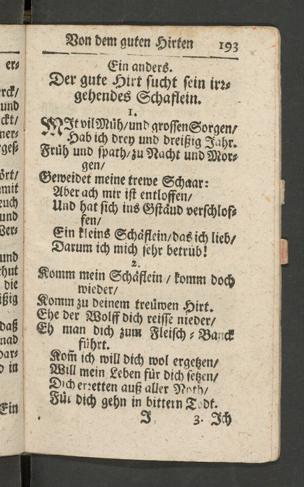 er-
rck/
und
ckt/
ner-
rges-
ört/
amit
euch
und
Ver-
und
chut
die
ißig
daß
nad
dar-
d in
Ein
Von dem guten Hirten 193
Ein anders.
Der gute Hirt sucht sein irr-
gehendes Schaflein.
1.
MIt vil Müh/ und grossen Sorgen/
Hab ich drey und dreißig Jahr.
Früh und spath/ zu Nacht und Mor-
gen/
Geweidet meine trewe Schaar:
Aber ach mir ist entloffen/
Und hat sich ins Gstäud verschlof-
fen/
Ein kleins Schäflein/ das ich lieb/
Darum ich mich sehr betrüb!
2.
Komm mein Schäflein / komm doch
wieder/
Komm zu deinem treüwen Hirt.
Ehe der Wolff dich reisse nieder/
Eh man dich zum Fleisch-Banck
führt.
Kom̃ ich will dich wol ergetzen/
Will mein Leben für dich setzen/
Dich erretten auß aller Noth/
Für dich gehn in bittern Todt.
J 3. Ich